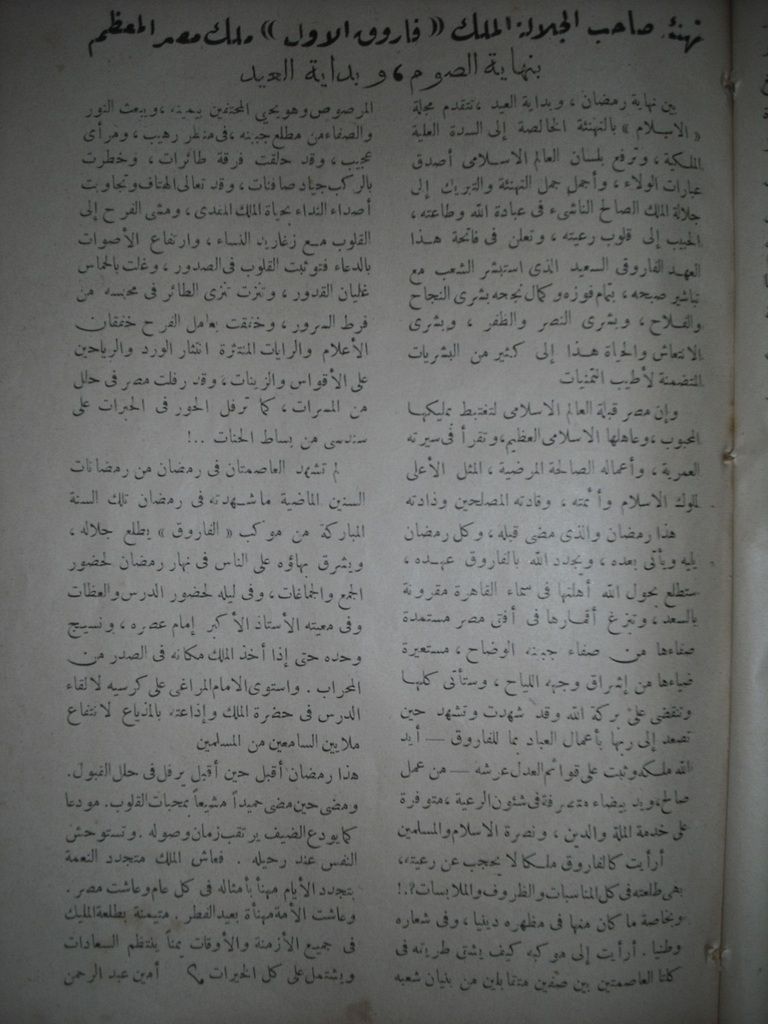 تهنئة صاحب الجلالة الملك «فاروق الاول» ملك مصر المعظم
بنهاية الصوم، وبداية العيد
بين نهاية رمضان، وبداية العيد، تتقدم مجلة
«الاسلام» بالتهنئة الخالصة إلى السدة العلية
الملكية، وترفع بلسان العالم الاسلامى أصدق
عبارات الولاء، وأجمل جمل التهنئة والتبريك إلى
جلالة الملك الصالح الناشىء فى عبادة الله وطاعته،
الحبيب إلى قلوب رعيته، وتعلن فى فاتحة هذا
العهد الفاروقى السعيد الذى استبشر الشعب مع
تباشير صبحه، بتمام فوزه وكمال نجحه بشرى النجاح
والفلاح، وبشرى النصر والظفر، وبشرى
الانتعاش والحياة هذا إلى كثير من البشريات
المتضمنة لأطيب التمنيات
وإن مصر قبلة العالم الاسلامى لتغتبط بمليكها
المحبوب، وعاهلها الاسلامى العظيم، وتقرأ فى سيرته
العمرية، وأعماله الصالحة المرضية، المثل الأعلى
لملوك الاسلام وأئمته، وقادته المصلحين وذادته
هذا رمضان والذى مضى قبله، وكل رمضان
يليه ويأتى بعده، ويجدد الله بالفاروق عهده،
ستطلع بحول الله أهلتها فى سماء القاهرة مقرونة
بالسعد، وتبزغ أقمارها فى أفق مصر مستمدة
صفاءها من صفاء جبينه الوضاح، مستعيرة
ضياءها من إشراق وجهه اللياح، وستأتى كلها
وتنقضى على بركة الله وقد شهدت وتشهد حين
تصعد إلى ربها بأعمال العباد بما للفاروق — أيد
الله ملكه وثبت على قوائم العدل عرشه — من عمل
صالح، ويد بيضاء متصرفة فى شئون الرعية، متوفرة
على خدمة الملة والدين، ونصرة الاسلام والمسلمين
أرأيت كالفاروق ملكا لا يحجب عن رعيته،
بهى طلعته فى كل المناسبات والظروف والملابسات؟.!
وبخاصة ما كان منها فى مظهره دينيا، وفى شعاره
وطنيا. أرأيت إلى موكبه كيف يشق طريقه فى
كلتا العاصمتين بين صفين متقابلين من بنيان شعبه
المرصوص وهو يحيى المحتفين بيمينه، ويبعث النور
والصفاء من مطلع جبينه، فى منظر رهيب، ومرأى
عجيب، وقد حلقت فرقة طائرات، وخطرت
بالركب جياد صافنات، وقد تعالى الهتاف وتجاوبت
أصداء النداء بحياة الملك المفدى، ومشى الفرح إلى
القلوب مع زغاريد النساء، وارتفاع الأصوات
بالدعاء فتوثبت القلوب فى الصدور، وغلت بالحماس
غليان القدور، وتنزت تنزى الطائر فى محبسه من
فرط السرور، وخفقت بعامل الفرح خفقان
الأعلام والرايات المنتثرة انتثار الورد والرياحين
على الأقواس والزينات، وقد رفلت مصر فى حلل
من المسرات، كما ترفل الحور فى الحبرات على
سندسى من بساط الجنات ..!
لم تشهد العاصمتان فى رمضان من رمضانات
السنين الماضية ما شهدته فى رمضان تلك السنة
المباركة من موكب «الفاروق» يطلع جلاله،
ويشرق بهاؤه على الناس فى نهار رمضان لحضور
الجمع والجماعات، وفى ليله لحضور الدرس والعظات
وفى معيته الأستاذ الأكبر إمام عصره، ونسيج
وحده حتى إذا أخذ الملك مكانه فى الصدر من
المحراب. واستوى الامام المراغى على كرسيه لالقاء
الدرس فى حضرة الملك وإذاعته بالمذياع لانتفاع
ملايين السامعين من المسلمين
هذا رمضان أقبل حين أقبل يرفل فى حلل القبول.
ومضى حين مضى حميداً مشيعاً بمحبات القلوب. مودعا
كما يودع الضيف يرتقب زمان وصوله. وتستوحش
النفس عند رحيله. فعاش الملك متجدد النعمة
بتجدد الأيام مهنأ بأمثاله فى كل عام وعاشت مصر.
وعاشت الأمة مهنأة بعيد الفطر. متيمنة بطلعة المليك
فى جميع الأزمنة والأوقات يمنا ينتظم السعادات
ويشتمل على كل الخيرات أمين عبد الرحمن